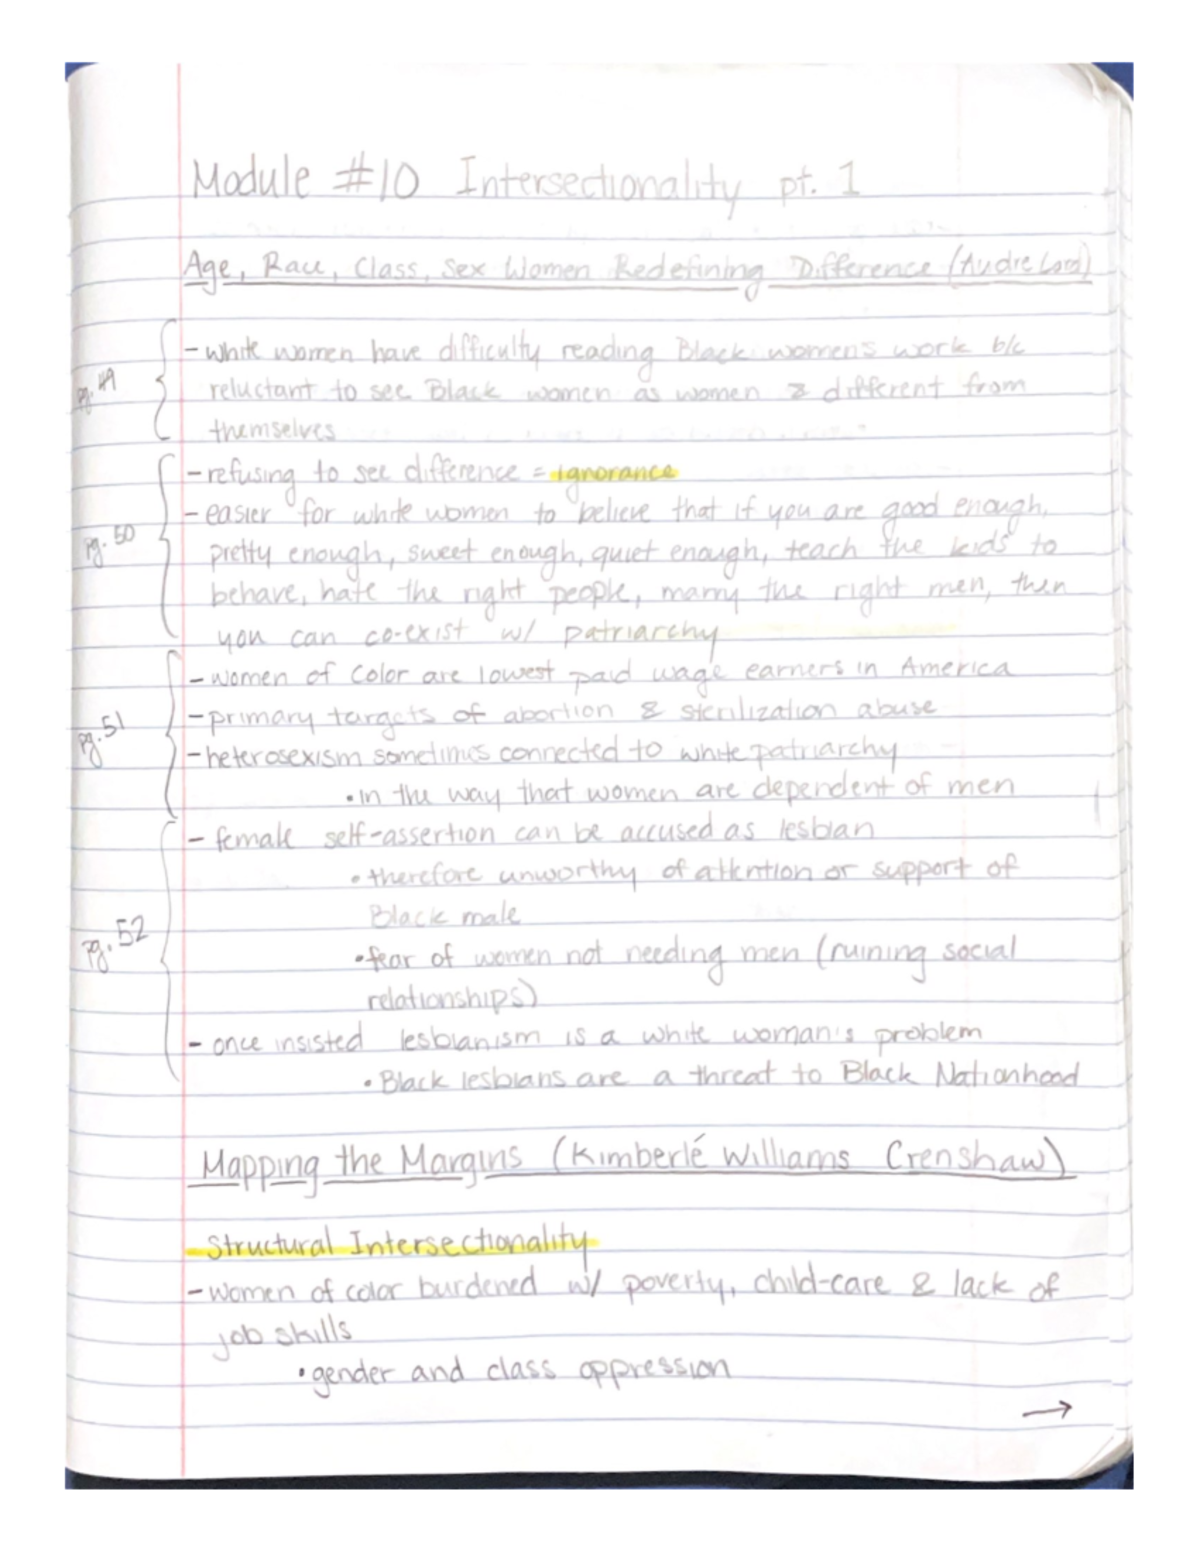 Module #10 Intersectionality pt. 1
Age, Race, Class, Sex Women Redefining Difference (Audre Lord)
- white women have difficulty reading Black women's work b/c
pg. 49
reluctant to see Black women as women & different from
themselves
- refusing to see difference = ignorance
- easier for white women to believe that if you are good enough,
pg. 50
pretty enough, sweet enough, quiet enough, teach the kids to
behave, hate the right people, marry the right men, then
you can co-exist w/ patriarchy
- women of color are lowest paid wage earners in America
pg. 51
- primary targets of abortion & sterilization abuse
- heterosexism sometimes connected to white patriarchy
• in the way that women are dependent of men
- female self-assertion can be accused as lesbian
• therefore unworthy of attention or support of
Black male
pg. 52
• fear of women not needing men (ruining social
relationships)
- once insisted lesbianism is a white woman's problem
• Black lesbians are a threat to Black Nationhood
Mapping the Margins (Kimberlé Williams Crenshaw)
Structural Intersectionality
- women of color burdened w/ poverty, child-care & lack of
job skills
• gender and class oppression
→